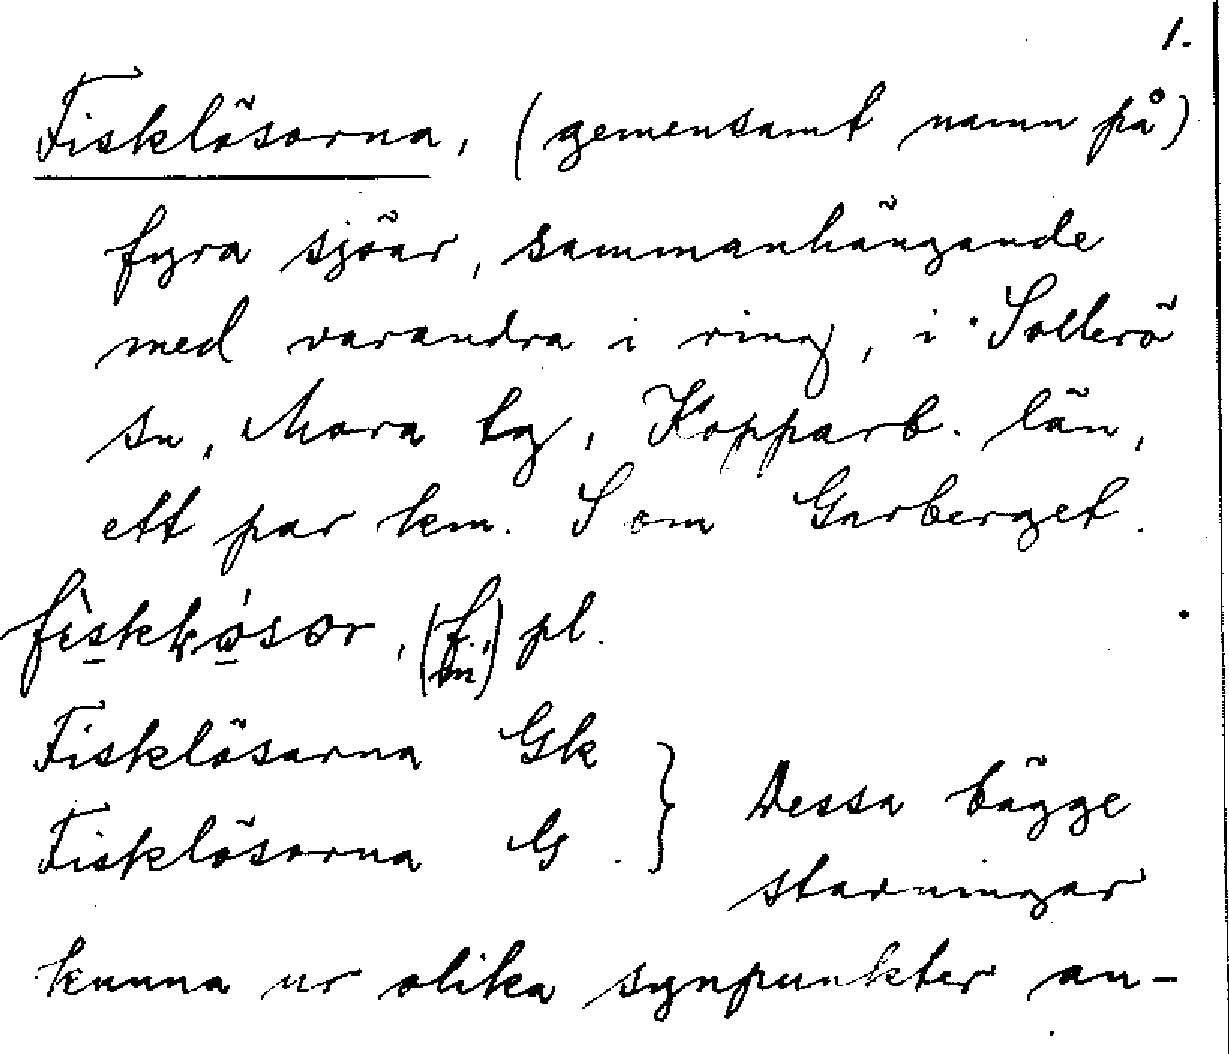 1.
Fisklösorna, (gemensamt namn på)
fyra sjöar, sammanhängande
med varandra i ring, i Sollerö
sn, Mora tg, Kopparb. län,
ett par km. S om Garberget.
(f. m.) pl.
Fisklösarna Gk
Fisklösorna G. } Dessa bägge
stavningar
kunna ur olika synpunkter an-